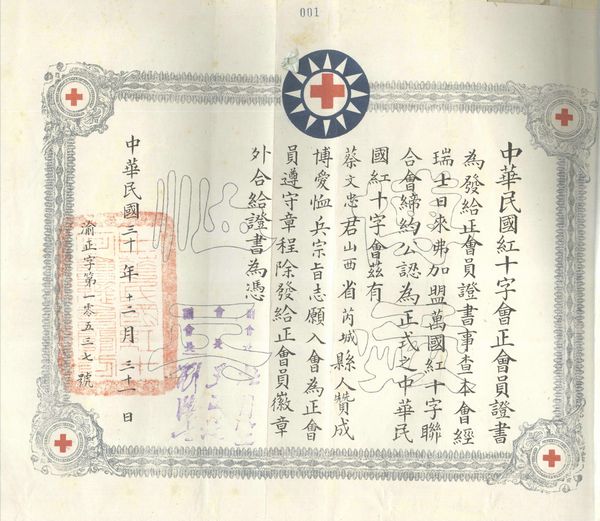 001
中華民國紅十字會正會員證書
為發給正會員證書事查本會經
瑞士日來弗加盟萬國紅十字聯
合會締約公認為正式之中華民
國紅十字會茲有
蔡文忠君山西省芮城縣人贊成
博愛恤兵宗旨志願入會為正會
員遵守章程除發給正會員徽章
外合給證書為憑
會長
副會長
中華民國三十年十二月三十一日
渝正字第一零五三七號